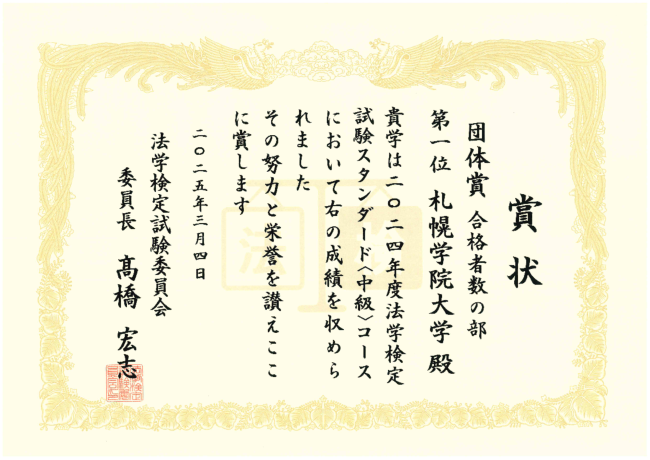 賞状
団体賞 合格者数の部
第一位 札幌学院大学 殿
貴学は二〇二四年度法学検定
試験スタンダード〈中級〉コース
において右の成績を収めら
れました
その努力と栄誉を讃えここ
に賞します
二〇二五年三月四日
法学検定試験委員会
委員長 髙橋 宏志
法